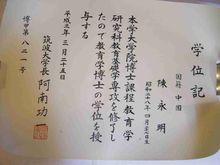 学位記
国籍 中国
陳永明
昭和二十八年四月二十四日生
本学大学院博士課程教育学
研究科教育基礎学専攻を修了し
たので教育学博士の学位を授
与する
平成三年三月二十五日
筑波大学長 阿南功一
博甲第八二一号